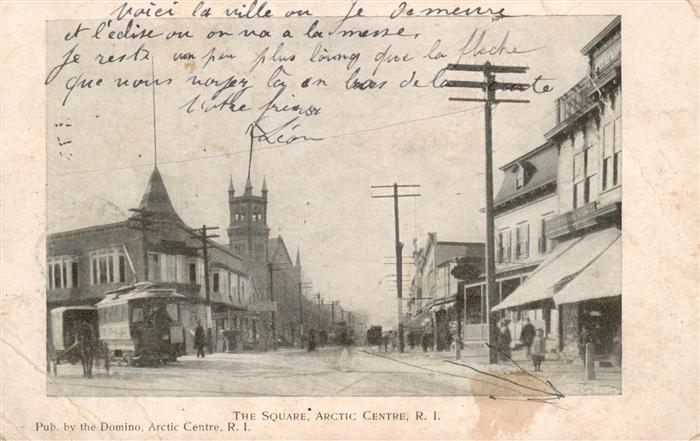 Voici la ville ou Je demeure
et l'église ou on va a la messe.
Je reste un peu plus loing que la flèche
que vous voyez là en bas de la carte
Votre frère
Léon
THE SQUARE, ARCTIC CENTRE, R. I.
Pub. by the Domino, Arctic Centre, R. I.